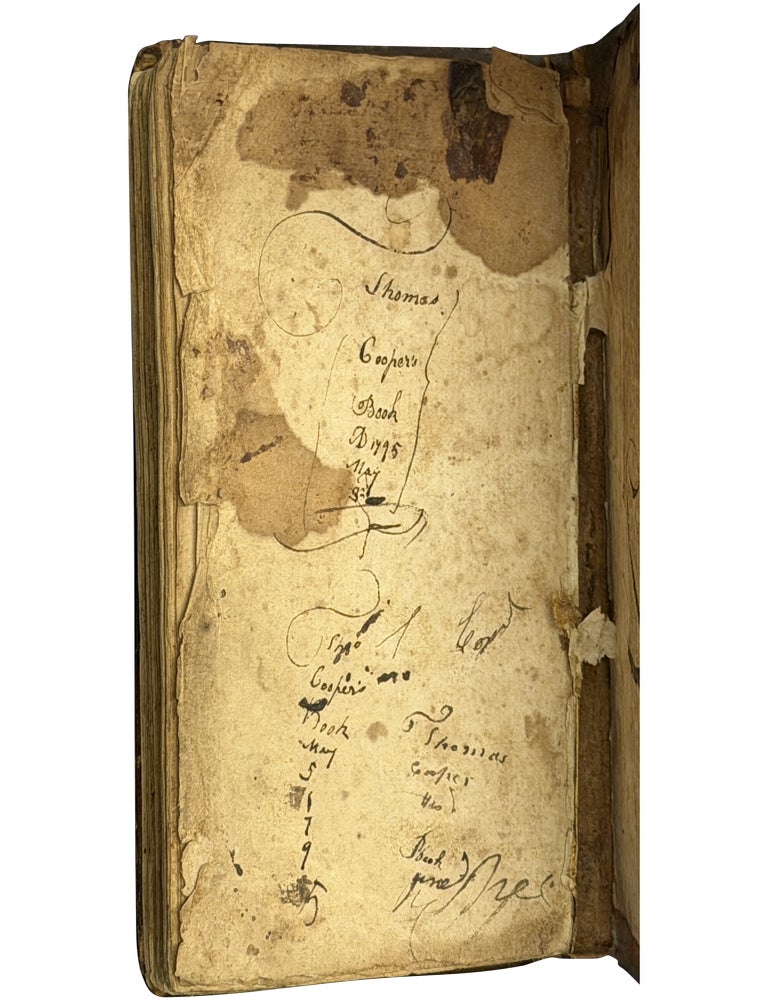 Thomas
Cooper's
Book
AD 1795
May
Thos
Cooper's
Book
May
5
1
7
9
5
Thomas
Cooper
His
Book